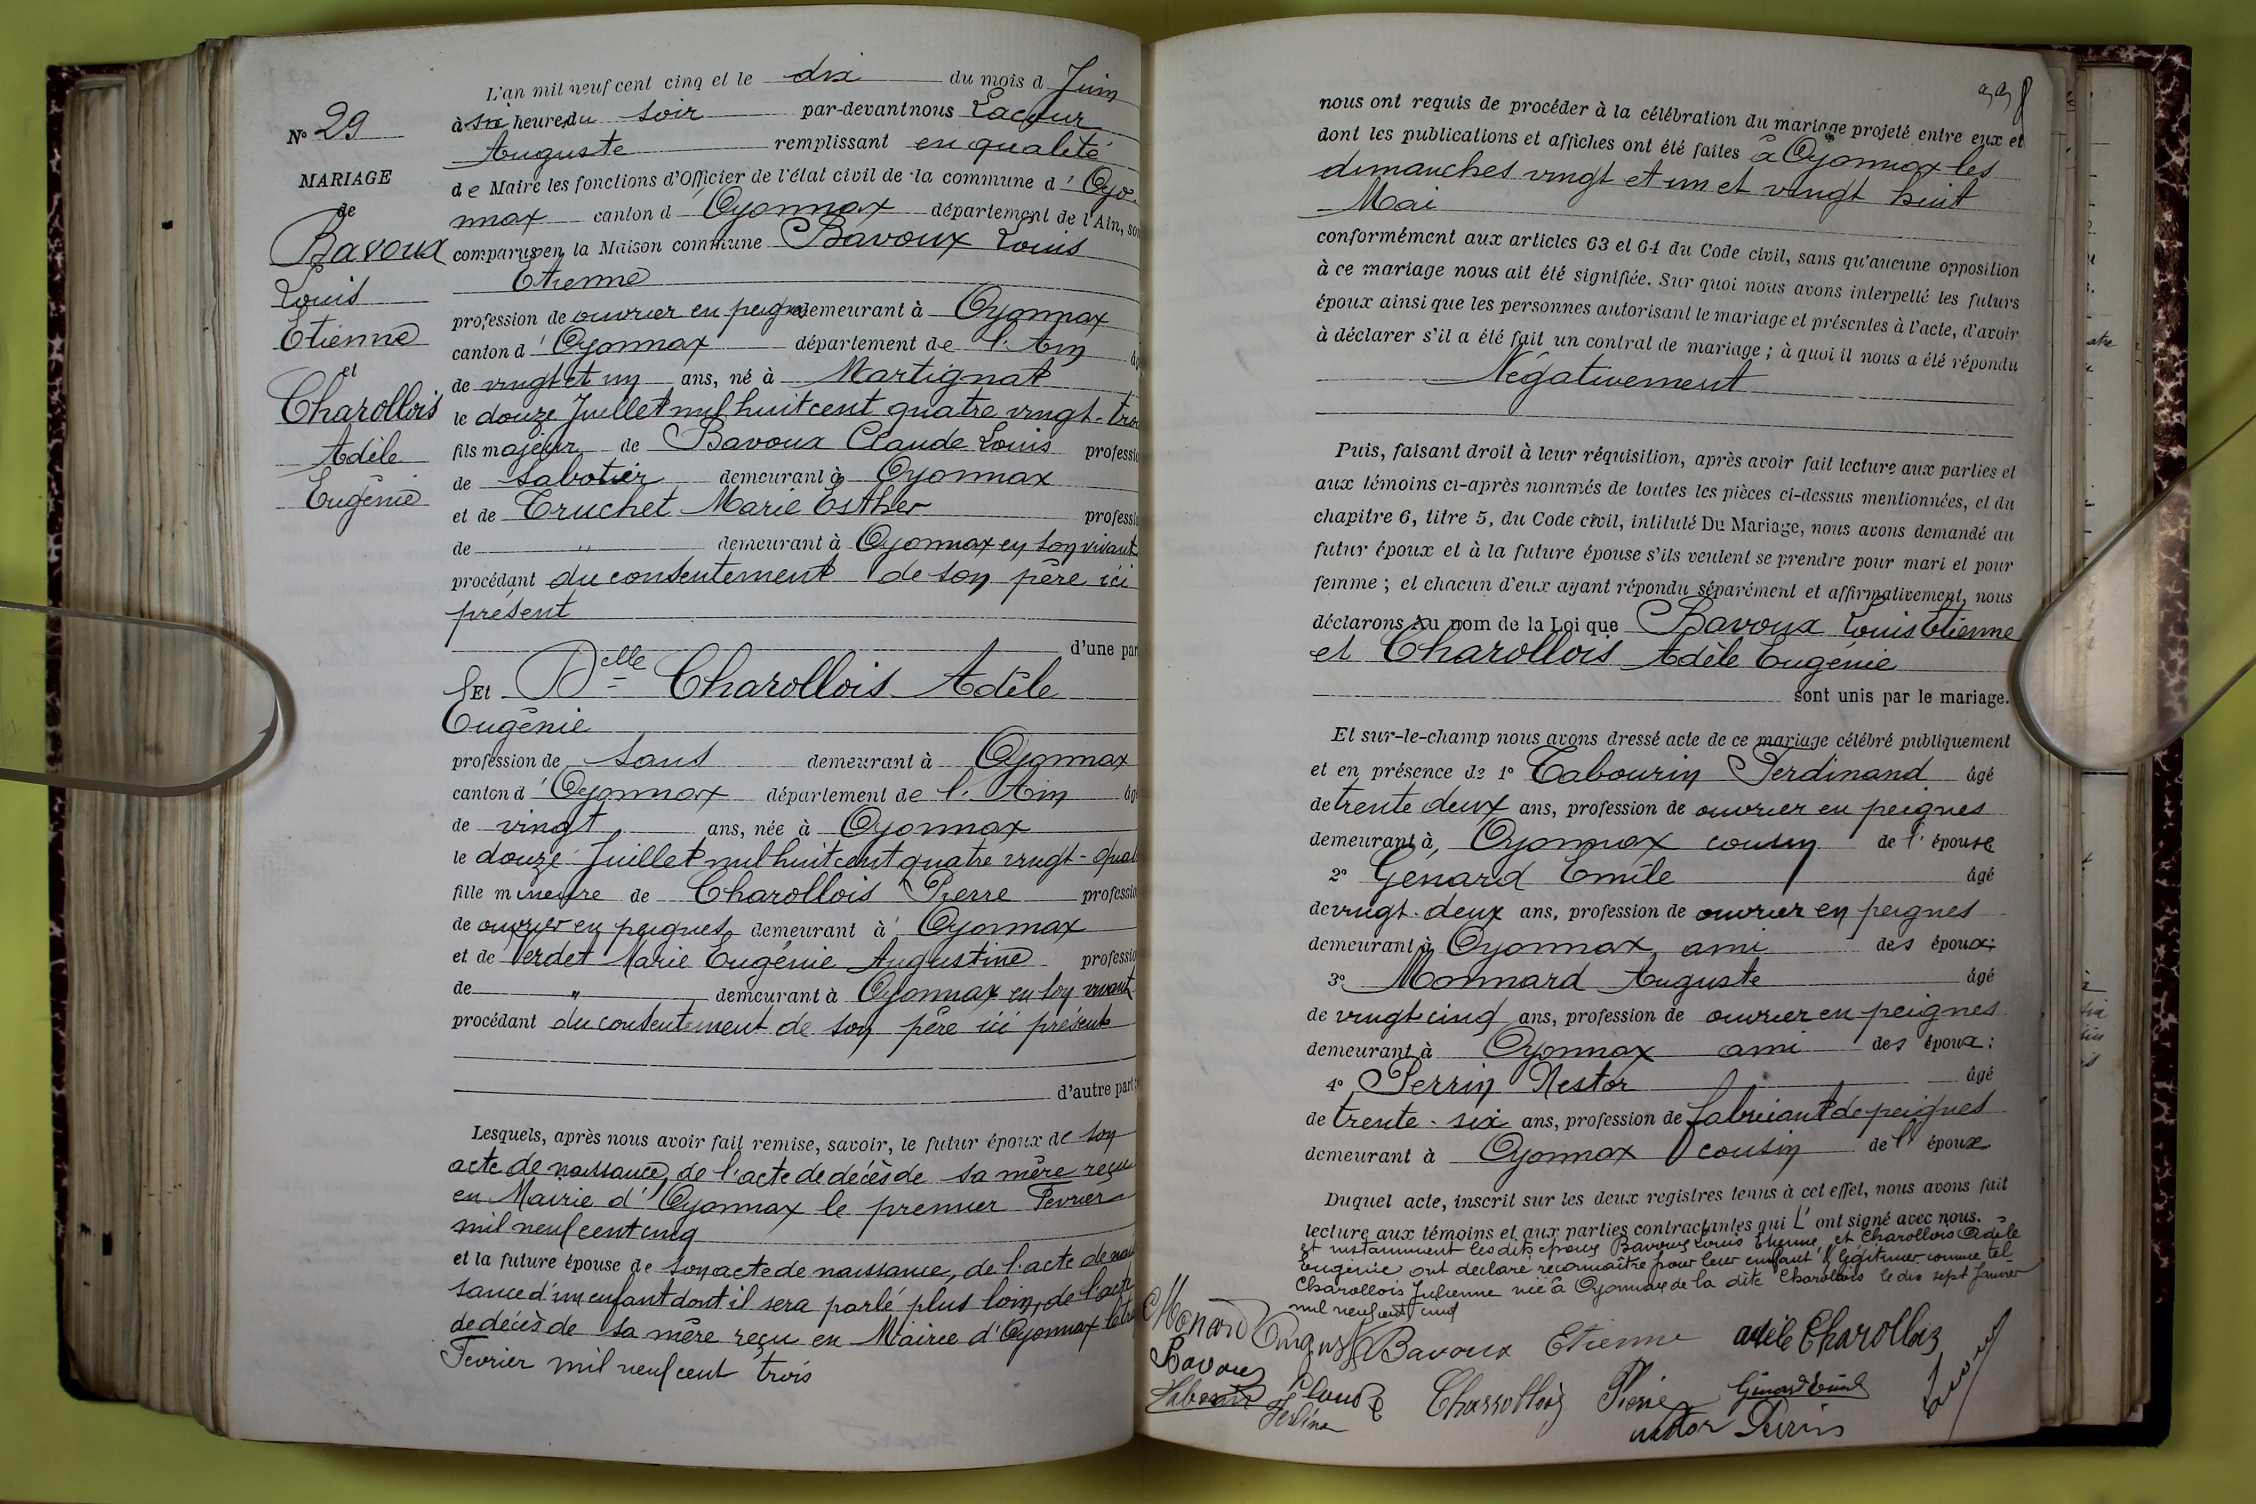 L'an mil neuf cent cinq et le dix du mois d Juin
à six heures du soir par-devant nous Lacour
Auguste remplissant en qualité
de Maire les fonctions d'Officier de l'état civil de la commune d' Oyo-
nnax canton d Oyonnax département de l'Ain, son
comparus en la Maison commune Bavoux Louis
Etienne
profession de ouvrier en peignes demeurant à Oyonnax
canton d' Oyonnax département de l'Ain âg
de vingt et un ans, né à Martignat
le douze Juillet mil huit cent quatre vingt-troi
fils majeur de Bavoux Claude Louis professio
de sabotier demeurant à Oyonnax
et de Truchet Marie Esther professio
de " demeurant à Oyonnax en son vivant
procédant du consentement de son père ici
présent
d'une par
N° 29
MARIAGE
de
Bavoux
Louis
Etienne
et
Charollois
Adèle
Eugénie
Et Delle Charollois Adèle
Eugénie
profession de sans demeurant à Oyonnax
canton d' Oyonnax département de l'Ain âg
de vingt ans, née à Oyonnax
le douze Juillet mil huit cent quatre vingt-quat
fille mineure de Charollois Pierre professio
de ouvrier en peignes demeurant à Oyonnax
et de Verdet Marie Eugénie Augustine professio
de " demeurant à Oyonnax en son vivant
procédant du consentement de son père ici présent
d'autre part
Lesquels, après nous avoir fait remise, savoir, le futur époux de son
acte de naissance, de l'acte de décès de sa mère reçu
en Mairie d' Oyonnax le premier Fevrier
mil neuf cent cinq
et la future épouse de son acte de naissance, de l'acte de nais
sance d'un enfant dont il sera parlé plus loin, de l'acte
de décès de sa mère reçu en Mairie d'Oyonnax le
Fevrier mil neuf cent trois
338
nous ont requis de procéder à la célébration du mariage projeté entre eux et
dont les publications et affiches ont été faites à Oyonnax les
dimanches vingt et un et vingt huit
Mai
conformément aux articles 63 et 64 du Code civil, sans qu'aucune opposition
à ce mariage nous ait été signifiée. Sur quoi nous avons interpellé les futurs
époux ainsi que les personnes autorisant le mariage et présentes à l'acte, d'avoir
à déclarer s'il a été fait un contrat de mariage ; à quoi il nous a été répondu
Négativement
Puis, faisant droit à leur réquisition, après avoir fait lecture aux parties et
aux témoins ci-après nommés de toutes les pièces ci-dessus mentionnées, et du
chapitre 6, titre 5, du Code civil, intitulé Du Mariage, nous avons demandé au
futur époux et à la future épouse s'ils veulent se prendre pour mari et pour
femme ; et chacun d'eux ayant répondu séparément et affirmativement, nous
déclarons Au nom de la Loi que Bavoux Louis Etienne
et Charollois Adèle Eugénie
sont unis par le mariage.
Et sur-le-champ nous avons dressé acte de ce mariage célébré publiquement
et en présence de 1° Tabourin Ferdinand âgé
de trente deux ans, profession de ouvrier en peignes
demeurant à Oyonnax cousin de l'épouse
2° Génard Emile âgé
de vingt-deux ans, profession de ouvrier en peignes
demeurant à Oyonnax, ami des époux;
3° Monnard Auguste âgé
de vingt-cinq ans, profession de ouvrier en peignes
demeurant à Oyonnax ami des époux;
4° Perrin Nestor âgé
de trente-six ans, profession de fabricant de peignes
demeurant à Oyonnax cousin de l' époux
Duquel acte, inscrit sur les deux registres tenus à cet effet, nous avons fait
lecture aux témoins et aux parties contractantes qui l'ont signé avec nous.
et instamment les dits époux Bavoux Louis Etienne et Charollois Adèle
Eugénie ont déclaré reconnaître pour leur enfant & légitimer comme tel
Charollois Julienne née à Oyonnax de la dite Charollois le dix sept Janvier
mil neuf cent cinq
Monard August Bavoux Etienne adèle Charollois
Bavoux Claude Charrollois Pierre Génard Emile
nestor Perrin